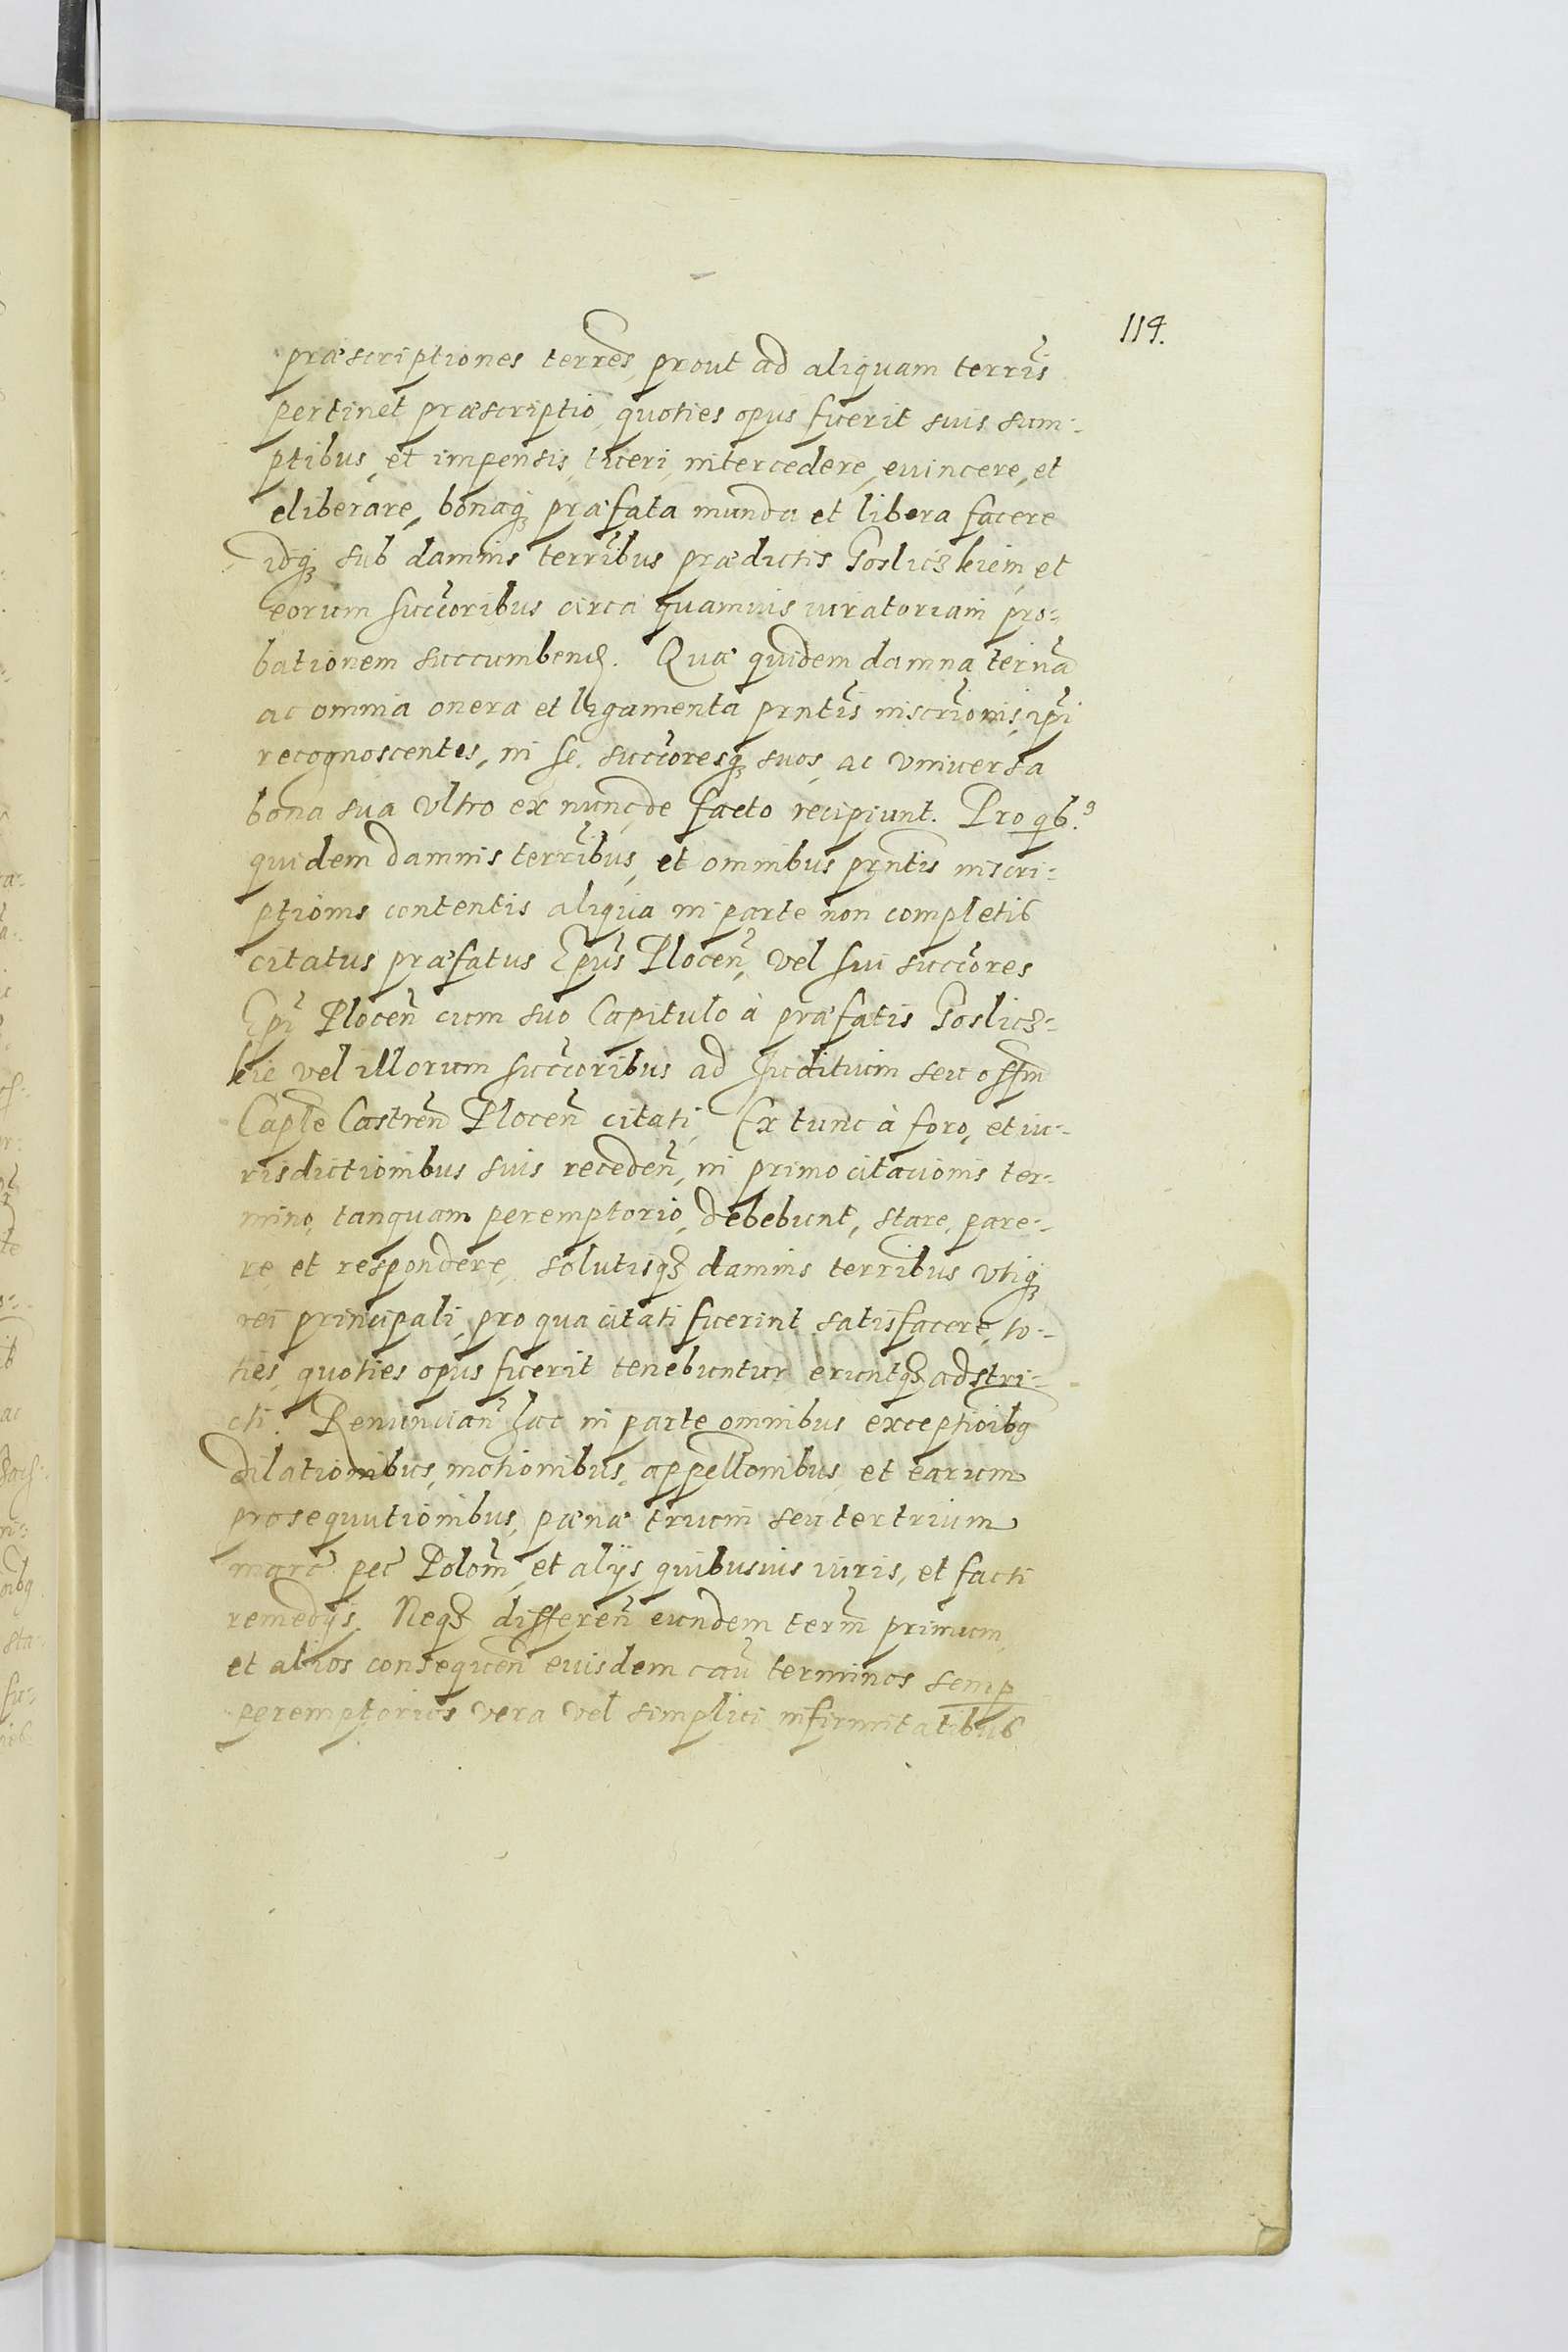 114.
præscriptiones terres, prout ad aliquam terris
pertinet præscriptio, quoties opus fuerit suis sum-
ptibus, et impensis, tueri, intercedere, euincere, et
eliberare, bonaq₃ præfata munda et libera facere
idq₃ sub damnis terribus prædictis Goslicz kiem, et
eorum succoribus circa quamuis iuratoriam pro-
bationem succumben. Quæ quidem damna terna
ac omnia onera et legamenta prntis inscrionis, ipi
recognoscentes, in se, succoresq₃ suos, ac vniuersa
bona sua vltro ex nunc de facto recipiunt. Pro qb.⁹
quidem damnis terribus, et omnibus prntis inscri-
ptionis contentis aliqua in parte non completis
citatus præfatus Epus Plocen, vel sui succores
Epi Plocen cum suo Capitulo à præfatis Goslicz-
kie vel illorum succoribus ad Juditium seu offm
Caple Castren Plocen citati, Ex tunc à foro, et iu-
risdictionibus suis receden, in primo citacionis ter-
mino, tanquam peremptorio, debebunt, stare, pare-
re et respondere, solutisq₃ damnis terribus vtiq₃
rei principali, pro qua citati fuerint satisfacere, to-
ties, quoties opus fuerit tenebuntur eruntq₃ adstri-
cti. Renuncian hac in parte omnibus exceptioibq
dilationibus, motionibus, appellonibus, et earum
prosequutionibus, pænæ trium seu ter trium
marc pec Polom, et alijs quibusuis iuris, et facti
remedijs. Neq₃ differen eundem term primum,
et alios consequen euisdem cau terminos semp
peremptorios vera vel simplici infirmitatibus